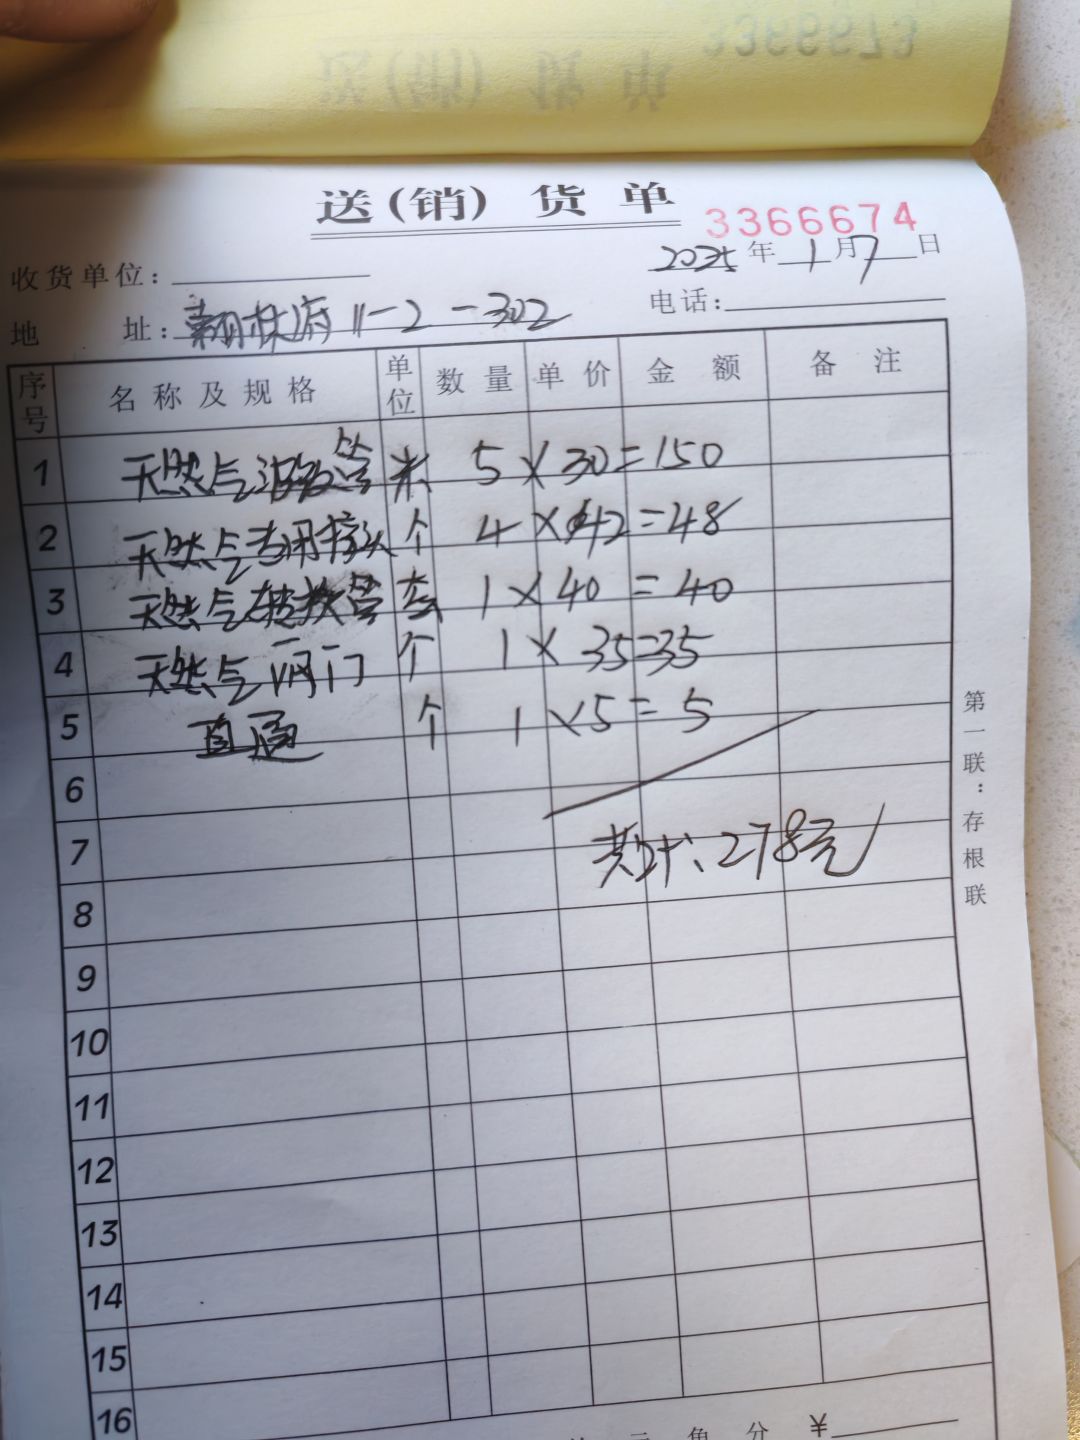 送(销)货单
3366674
收货单位:
2025年1月7日
地址:翰林府11-2-302
电话:
序号 名称及规格 单位 数量 单价 金额 备注
1 天然气波纹管 米 5×30=150
2 天然气专用接头 个 4×12=48
3 天然气转换管 套 1×40=40
4 天然气阀门 个 1×35=35
5 直通 个 1×5=5
6
7 共计、278元
8
9
10
11
12
13
14
15
16
元角分 ¥
第一联:存根联